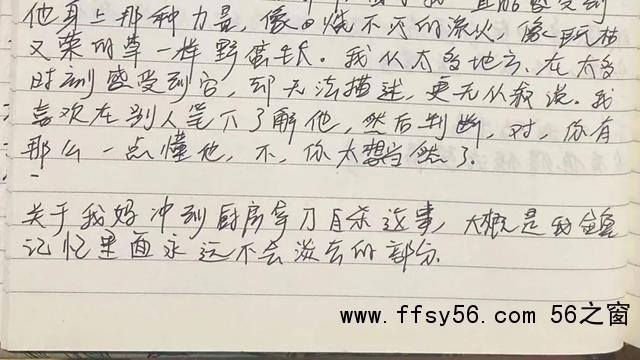 他身上那种力量，像日烧不灭的流火，像一玩枯
又荣的草一样野蛮生长。我从太多地方、在太多
时刻感受到它，却无法描述，更无从叙说。我
喜欢在别人笔下了解他，然后判断 对，你有
那么一点懂他，不，你太想当然了。
关于我妈冲到厨房拿刀自杀这事，大概是我
记忆里面永远不会淡去的部分。
www.ffsy56.com 56之窗